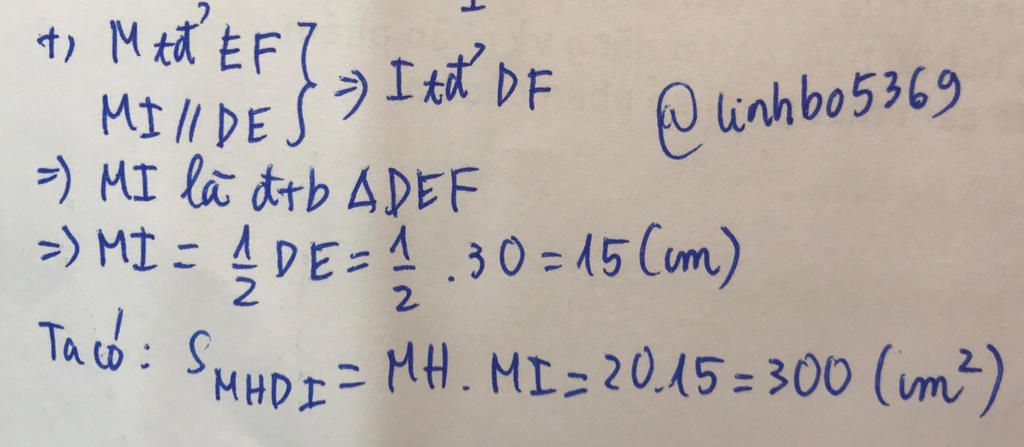 +, M tđ' EF } => I tđ' DF
MI // DE
@linhbo5369
=) MI là đtb ΔDEF
=) MI = 1/2 DE = 1/2 . 30 = 15 (cm)
Ta có: S_MHDI = MH. MI = 20.15 = 300 (cm²)